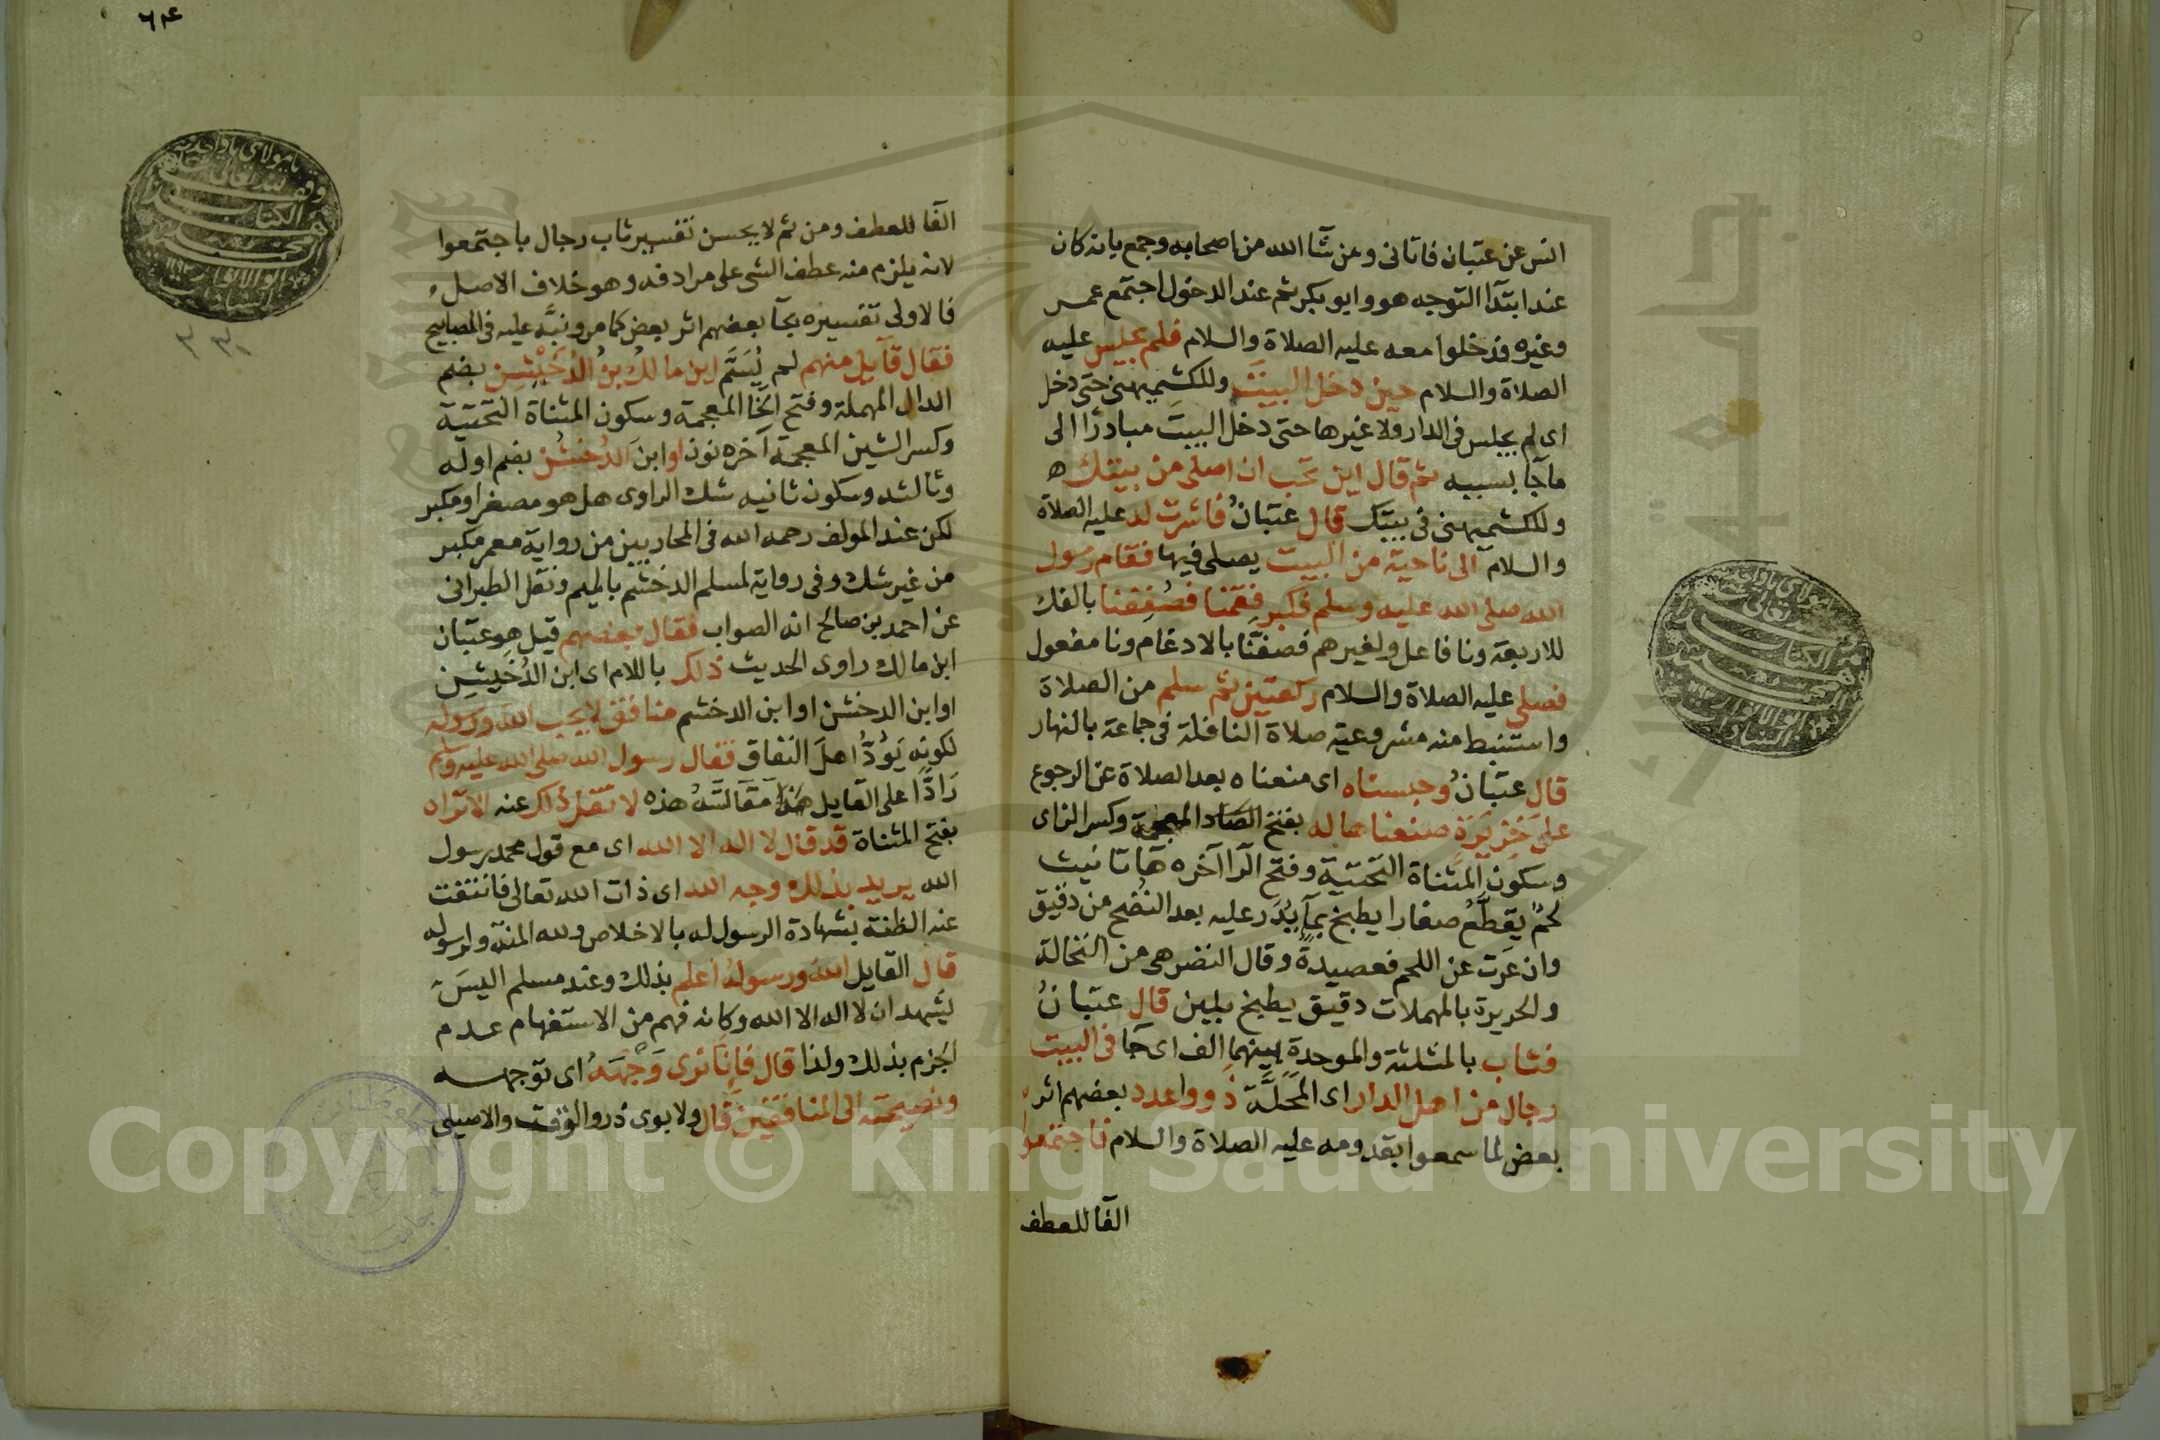 انس عن عتبان فاتانى ومن شآ الله من اصحابه وجمع بانه كان
عند ابتدآ التوجه هو وابو بكر ثم عند الدخول اجتمع عمر
وغيره فدخلوا معه عليه الصلاة والسلام فلم يجلس عليه
الصلاة والسلام حين دخل البيت وللكشميهنى حتى دخل
اى لم يجلس فى الدار ولا غيرها حتى دخل البيت مبادرًا الى
ما جآ بسببه ثم قال اين تحب ان اصلى من بيتك
وللكشميهنى فى بيتك قال عتبانُ فاشرت له عليه الصلاة
والسلام الى ناحية من البيت يصلى فيها فقام رسول
الله صلى الله عليه وسلم فكبر فقمنا فصُفِفنا بالفك
للاربعة ونا فاعل ولغيرهم فصفّنا بالادغام ونا مفعول
فصلى عليه الصلاة والسلام ركعتين ثم سلم من الصلاة
واستنبط منه مشروعية صلاة النافلة فى جماعة بالنهار
قال عتبانُ وحبسناه اى منعناه بعد الصلاة عن الرجوع
على خَزِيرَةٍ صنعناها له بفتح الخا المعجمة وكسر الزاى
وسكون المثناة التحتية وفتح الرا آخره هآ تانيث
لحمٌ يقطَّعُ صغارا يطبخ بمآ يُذَر عليه بعد النُضج من دقيق
وان عَرَت عن اللحم فعصيدةٌ وقال النضر هى من النخالة
والحريرة بالمهملات دقيق يطبخ بلبن قال عتبانُ
فثاب بالمثلثة والموحدة بينهما الف اى جآ فى البيت
رجال من اهل الدار اى المَحَلَّة ذووا عدد بعضهم اثر
بعض لما سمعوا بقدومه عليه الصلاة والسلام فاجتمعوا
الفآ للعطف
٦٤
الفآ للعطف ومن ثم لا يحسن تفسير ثاب رجال باجتمعوا
لانه يلزم منه عطف الشى على مرادفه وهو خلاف الاصل
فالاولى تفسيره بجآ بعضهم اثر بعض كما مر ونبَّه عليه فى المصابيح
فقال قآيل منهم لم يُسَمَّ اين مالك بن الدُخَيْشِن بضم
الدال المهملة وفتح الخا المعجمة وسكون المثناة التحتية
وكسر الشين المعجمة آخره نون او ابن الدُخشُن بضم اوله
وثالثه وسكون ثانيه شك الراوى هل هو مصغر او مكبر
لكن عند المولف رحمه الله فى المحاربين من رواية معمر مكبر
من غير شك وفى رواية لمسلم الدخشم بالميم ونقل الطبرانى
عن احمد بن صالح انه الصواب فقال بعضهم قيل هو عتبان
ابن مالك راوى الحديث ذلك باللام اى ابن الدُخَيشِن
او ابن الدخشن او ابن الدخشم منافق لا يحب الله ورسوله
لكونه يَوُدُّ اهلَ النفاق فقال رسول الله صلى الله عليه وسلم
رَادًّا على القايل مَقَالتَهُ هذه لا تقل ذاك عنه الا تراه
بفتح المثناة قد قال لا اله الا الله اى مع قول محمد رسول
الله يريد بذلك وجه الله اى ذات الله تعالى فانتفت
عنه الظنة بشهادة الرسول له بالاخلاص ولله المنة ولرسوله
قال القايل الله ورسوله اعلم بذلك وعند مسلم اليسَ
يشهد ان لا اله الا الله وكانه فهم من الاستفهام عدم
الجزم بذلك ولذا قال فانا نرى وَجْهَهُ اى توجهه
ونصيحته الى المنافقين قال ولابوى ذر والوقت والاصيلى
Copyright © King Saud University